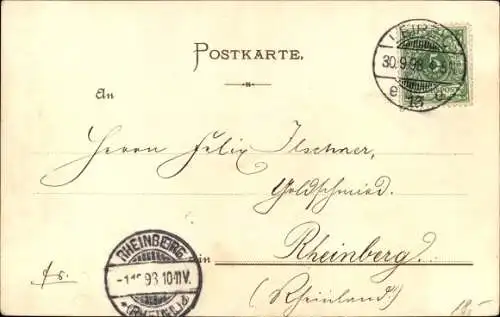 POSTKARTE.
LEIPZIG
30.9.98.
e
13
POST
An
Herrn Felix Ilschner,
Goldschmied.
in Rheinberg.
(Rheinland.)
RHEINBERG
10-11V.
(RHEINL.)
fr.